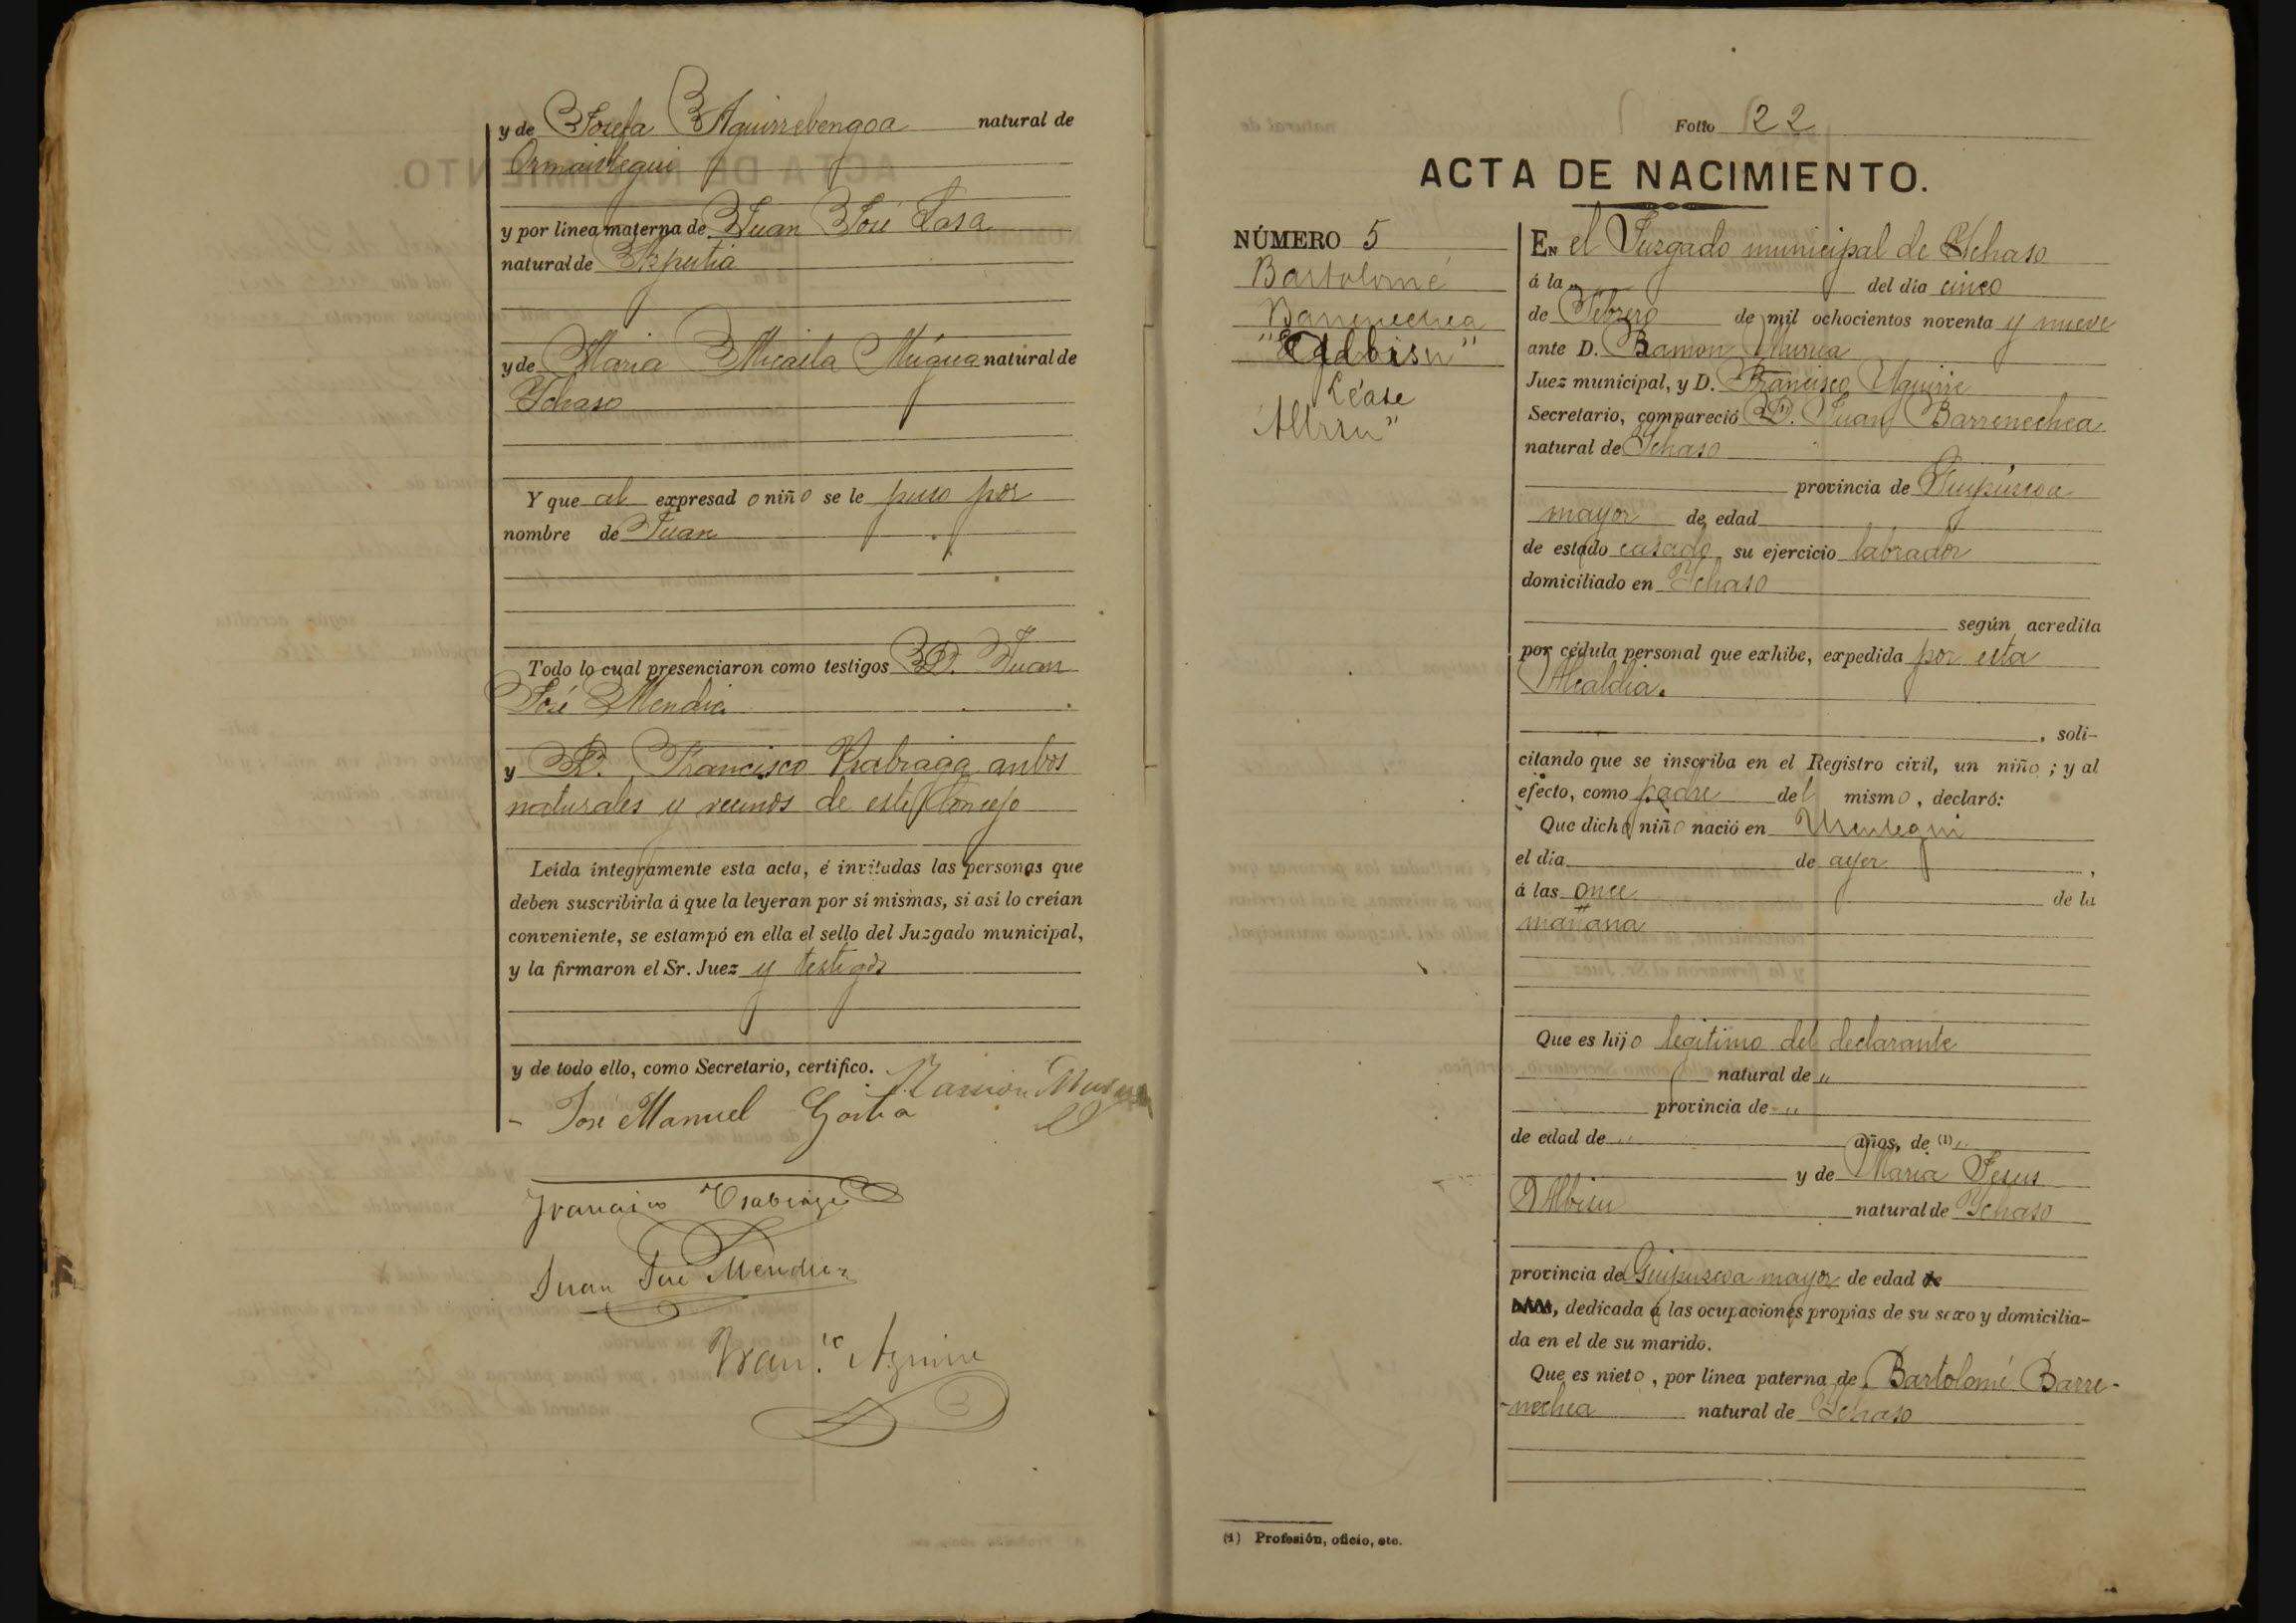 y de Josefa Aguirrebengoa natural de
Ormaiztegui
y por línea materna de Juan José Lasa
natural de Azpeitia
y de Maria Micaela Múgica natural de
Ichaso
Y que al expresado niño se le puso por
nombre de Juan
Todo lo cual presenciaron como testigos D. Juan
José Mendia
y D. Francisco Usabiaga ambos
naturales y vecinos de este Concejo
Leída íntegramente esta acta, é invitadas las personas que
deben suscribirla á que la leyeran por sí mismas, si así lo creían
conveniente, se estampó en ella el sello del Juzgado municipal,
y la firmaron el Sr. Juez y testigos
y de todo ello, como Secretario, certifico.
Ramon
José Manuel Goitia
Francisco Usabiaga
Juan José Mendia
Fran.co Aguirre
Folio 22
ACTA DE NACIMIENTO.
NÚMERO 5
Bartolomé
Barrenechea
"Albisu"
Léase
En el Juzgado municipal de Ichaso
á la " del día cinco
de Febrero de mil ochocientos noventa y nueve
ante D. Ramon Murua
Juez municipal, y D. Francisco Aguirre
Secretario, compareció D. Juan Barrenechea
natural de Ichaso
provincia de Guipúzcoa
mayor de edad
de estado casado su ejercicio labrador
domiciliado en Ichaso
según acredita
por cédula personal que exhibe, expedida por esta
Alcaldia.
, soli-
citando que se inscriba en el Registro civil, un niño; y al
efecto, como padre del mismo, declaró:
Que dicho niño nació en
el día de ayer,
á las once de la
mañana
Que es hijo legitimo del declarante
natural de "
provincia de "
de edad de " años, de (1) "
y de Maria Jesus
Albisu natural de Ichaso
provincia de Guipuzcoa mayor de edad
, dedicada á las ocupaciones propias de su sexo y domicilia-
da en el de su marido.
Que es nieto, por línea paterna de Bartolomé Barre-
-nechea natural de Ichaso
(1) Profesión, oficio, etc.